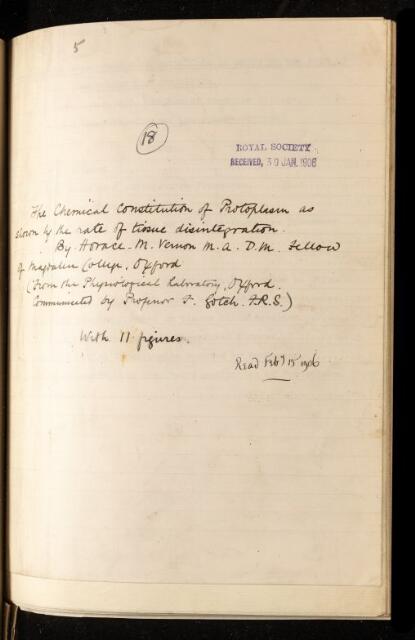 5
18
ROYAL SOCIETY
RECEIVED, 30 JAN. 1906
The Chemical Constitution of Protoplasm as
shown by the rate of tissue disintegration.
By Horace. M. Vernon M.A. D.M. Fellow
of Magdalen College, Oxford
(From the Physiological Laboratory, Oxford.
Communicated by Professor F. Gotch. F.R.S.)
With 11 figures.
Read Feb 15 1906